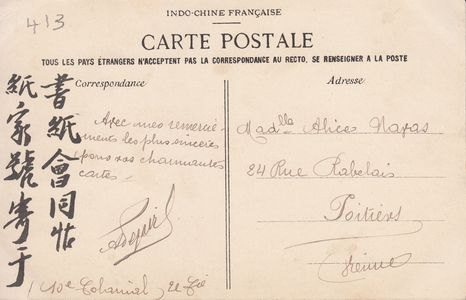 413
INDO-CHINE FRANÇAISE
CARTE POSTALE
TOUS LES PAYS ÉTRANGERS N'ACCEPTENT PAS LA CORRESPONDANCE AU RECTO, SE RENSEIGNER A LA POSTE
Correspondance
Avec mes remercie-
ments les plus sincères
pour vos charmantes
cartes-
10e Colonial
書紙會同帖
紙家號寄于
Adresse
Madlle Alices
24 Rue Rabelais
Poitiers
Vienne